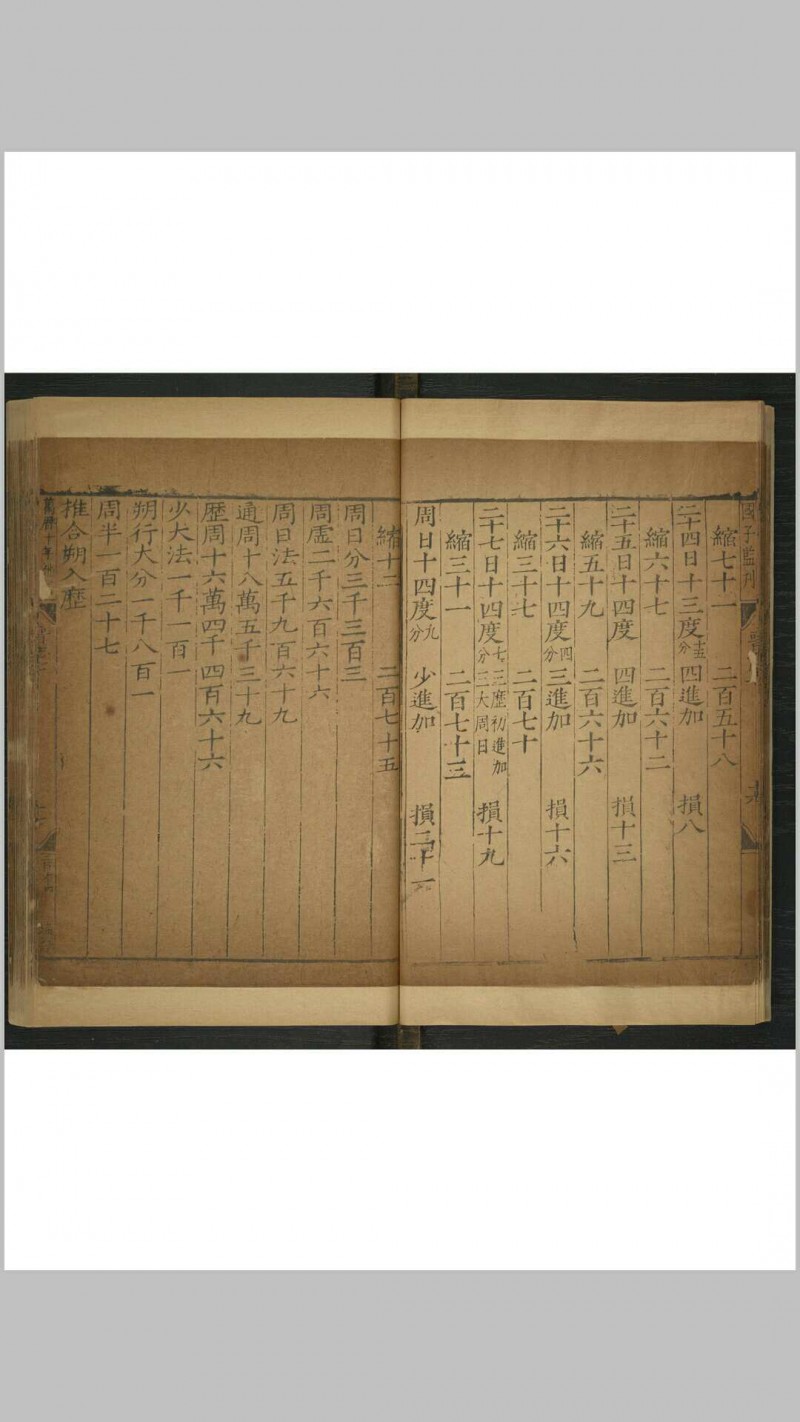 國子監刊
縮七十一 二百五十八
二十四日十三度十五分 四進加 損八
縮六十七 二百六十二
二十五日十四度 四進加 損十三
縮五十九 二百六十六
二十六日十四度四分 三進加 損十六
縮三十七 二百七十
二十七日十四度七分 三歷初進加三大周日 損十九
縮三十一 二百七十三
周日十四度九分 少進加 損二十一
縮十二 二百七十五
周日分三千三百三
周虛二千六百六十六
周日法五千九百六十九
通周十八萬五千三十九
歷周十六萬四千四百六十六
少大法一千一百一
朔行大分一千八百一
周半一百二十七
推合朔入歷